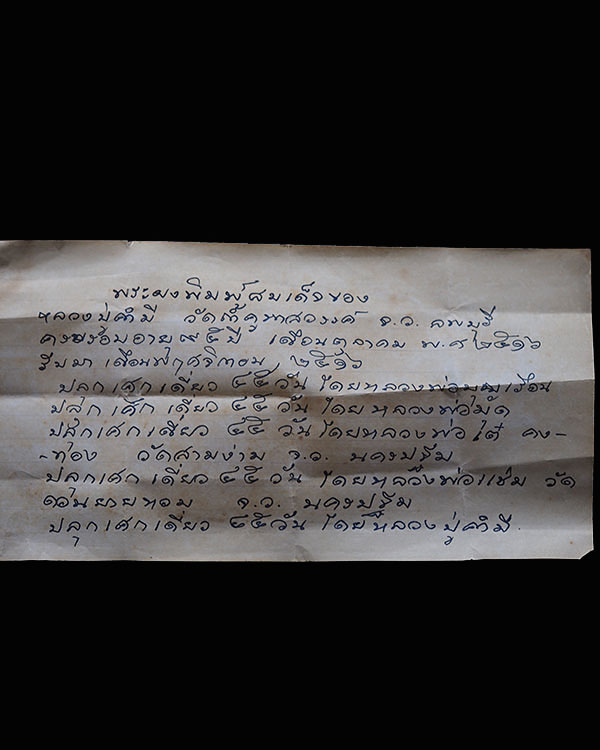 พระผงพิมพ์สมเด็จของ
หลวงปู่คำมี วัดถ้ำคูหาสวรรค์ จ.ว. ลพบุรี
ครบรอบอายุ ๘๕ ปี เดือนตุลาคม พ.ศ ๒๕๑๖
รับมา เดือนพฤศจิกายน ๒๕๑๖
ปลุกเศกเดี่ยว ๔๕ วัน โดยหลวงพ่อมุม
ปลุกเศกเดี่ยว ๔๕ วัน โดยหลวงพ่อมัด
ปลุกเศกเดี่ยว ๔๕ วัน โดยหลวงพ่อเต๋ คง-
-ทอง วัดสามง่าม จ.ว. นครปฐม
ปลุกเศกเดี่ยว ๔๕ วัน โดยหลวงพ่อแช่ม วัด
ดอนยายหอม จ.ว. นครปฐม
ปลุกเศกเดี่ยว ๔๕ วัน โดยหลวงปู่คำมี.